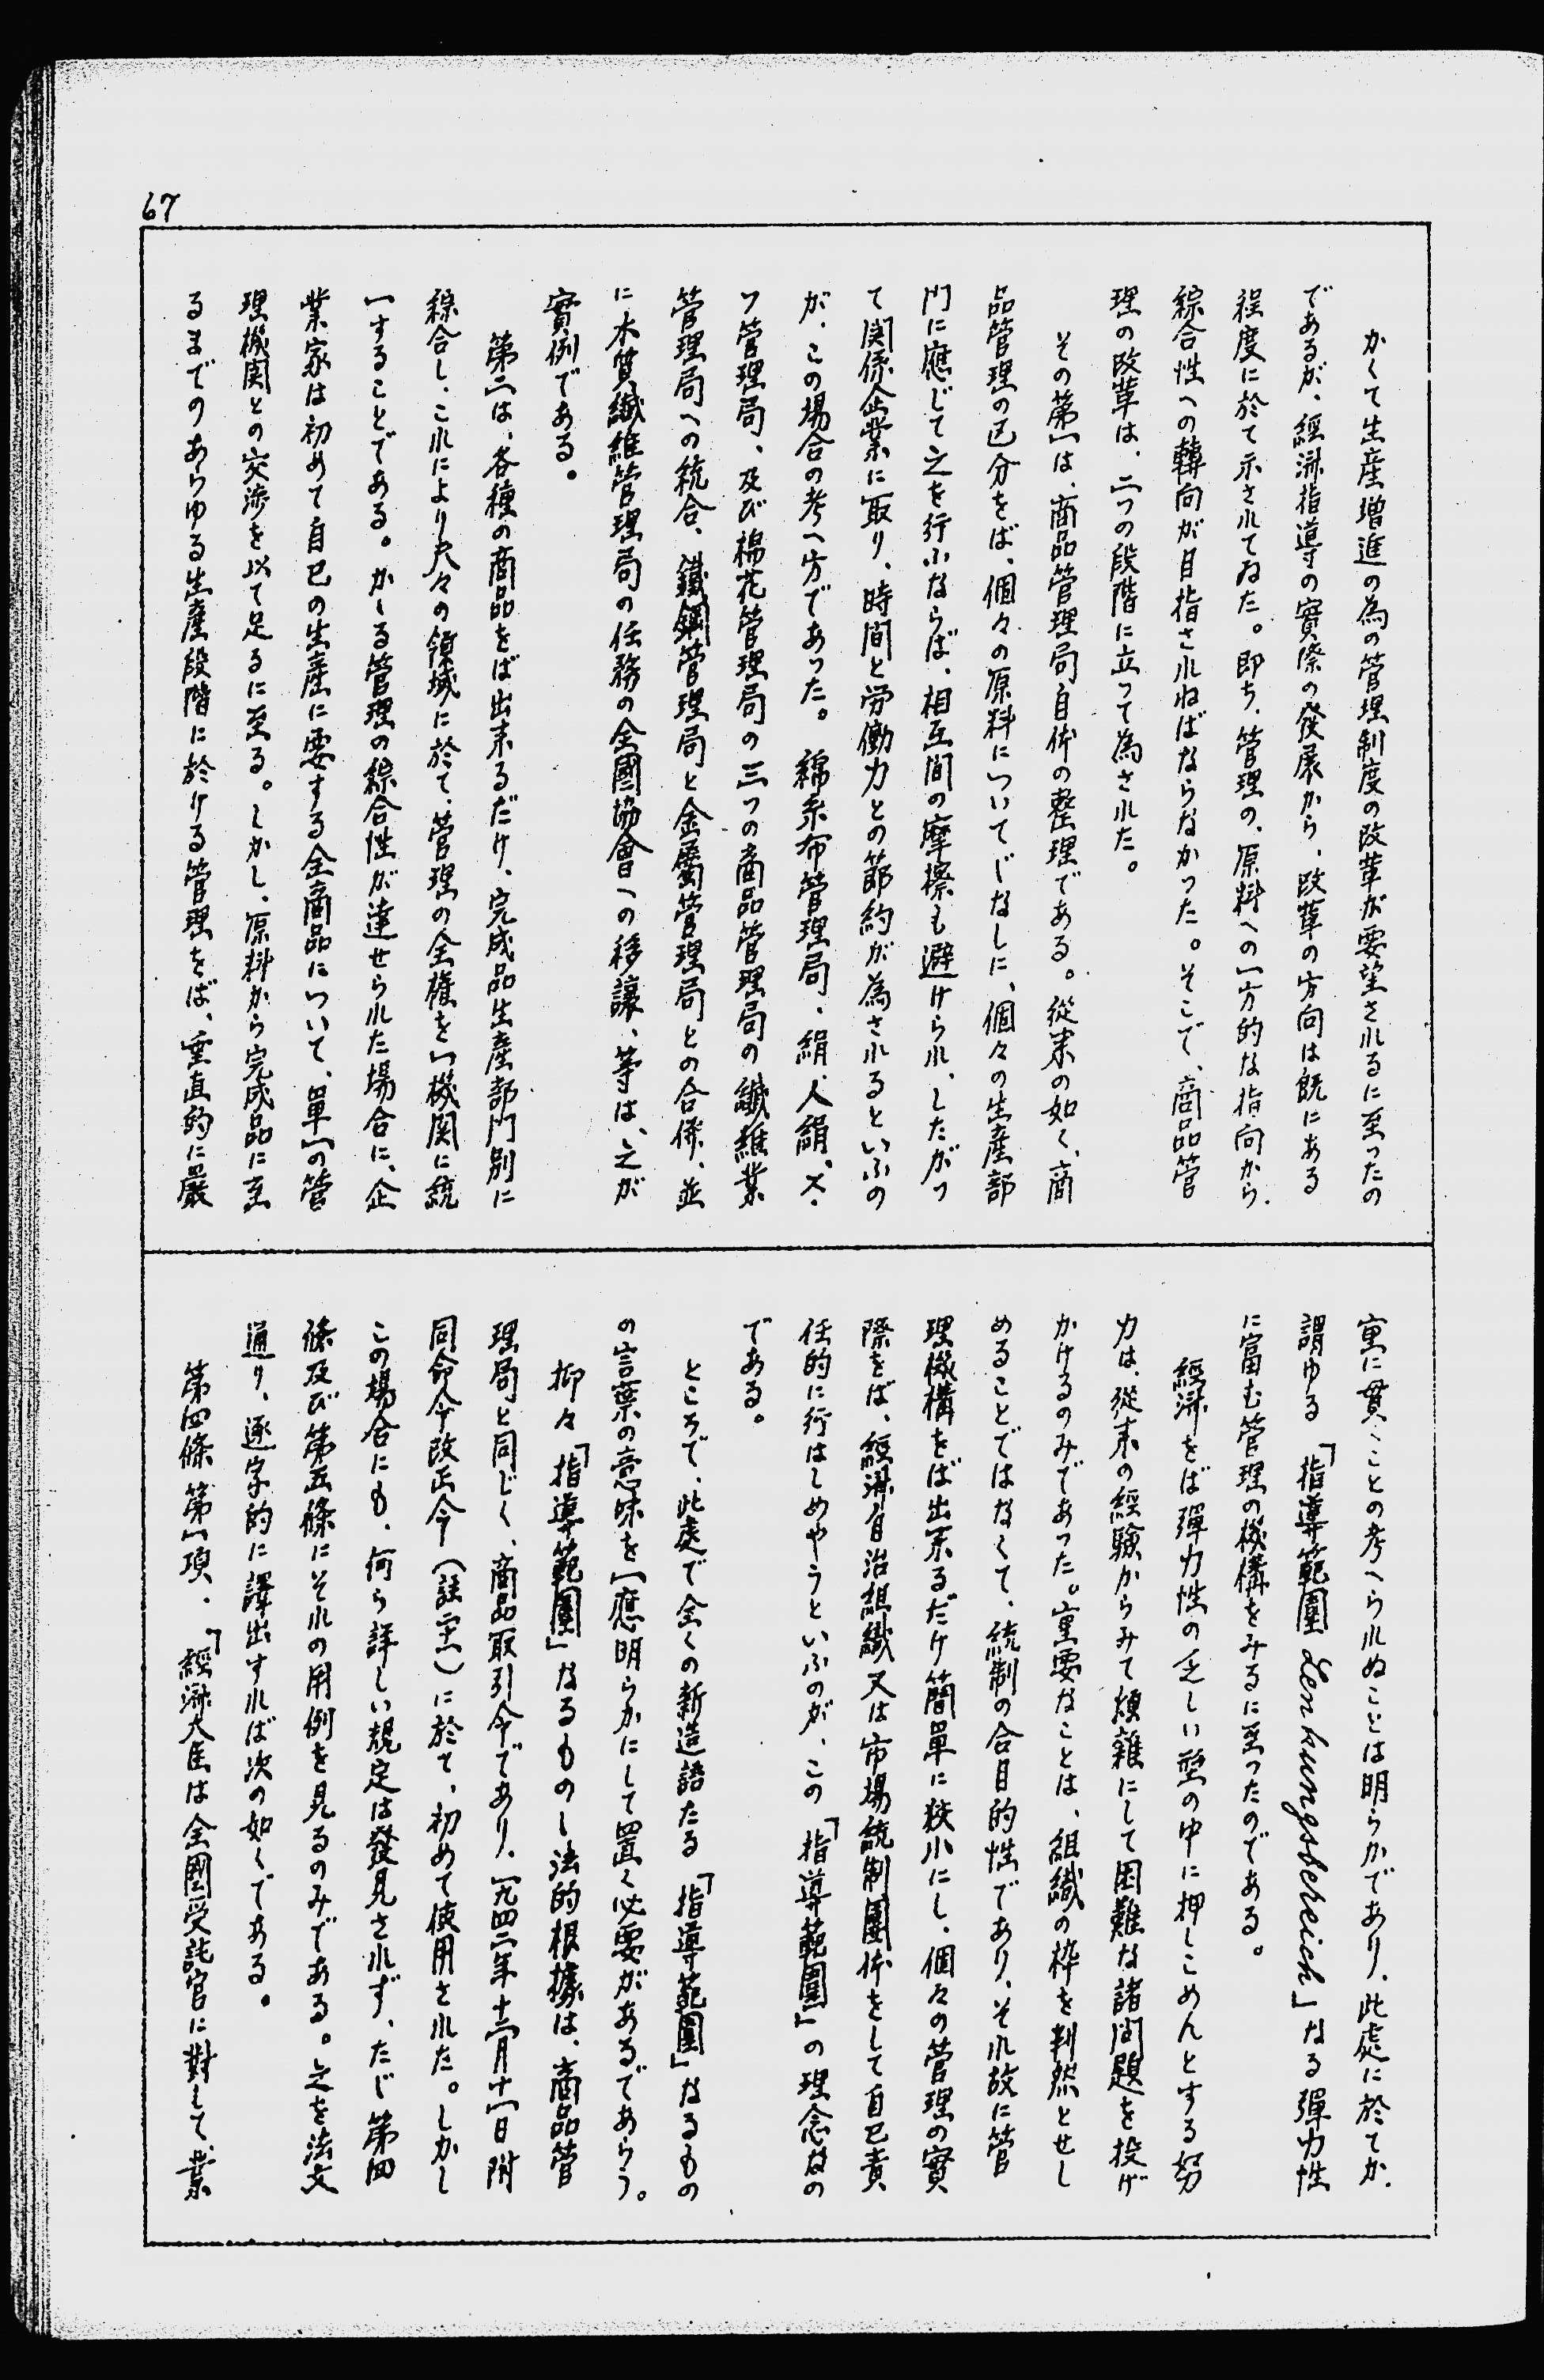 67
かくて生産増進の為の管理制度の改革が要望されるに至つたの
であるが、經済指導の實際の發展から、改革の方向は既にある
程度に於て示されてゐた。即ち、管理の、原料への一方的な指向から、
綜合性への轉向が目指されねばならなかつた。そこで、商品管
理の改革は、二つの段階に立つて為された。
その第一は、商品管理局自体の整理である。從来の如く、商
品管理の区分をば、個々の原料についてじなしに、個々の生産部
门に應じて之を行ふならば、相互间の摩擦も避けられ、したがつ
て関係企業に取り、時间と労働力との節約が為されるといふの
が、この場合の考へ方であつた。綿糸布管理局、絹、人絹、ス・
フ管理局、及び棉花管理局の三つの商品管理局の纎維業
管理局への統合、鐵鋼管理局と金屬管理局との合併、並
に木質纎維管理局の任務の全國協會への移讓、等は、之が
實例である。
第二は、各種の商品をば出来るだけ、完成品生産部门別に
綜合し、これにより尺々の領域に於て、管理の全權を一機関に統
一することである。かゝる管理の綜合性が達せられた場合に、企
業家は初めて自己の生産に要する全商品について、單一の管
理機関との交渉を以て足るに至る。しかし、原料から完成品に至
るまでのあらゆる生産段階に於ける管理をば、垂直的に嚴
重に貫くことの考へられぬことは明らかであり、此處に於てか、
謂ゆる「指導範圍 Lenkungsbereich」なる彈力性
に富む管理の機構をみるに至つたのである。
經済をば彈力性の乏しい型の中に押しこめんとする努
力は、從来の經驗からみて煩雜にして困難な諸问題を投げ
かけるのみであつた。重要なことは、組織の枠を判然とせし
めることではなくて、統制の合目的性であり、それ故に管
理機構をば出来るだけ簡單に狹小にし、個々の管理の實
際をば、經済自治組織又は市場統制團体をして自己責
任的に行はしめやうといふのが、この「指導範圍」の理念なの
である。
ところで、此處で全くの新造語たる「指導範圍」なるもの
の言葉の意味を一應明らかにして置く必要があるであらう。
抑々「指導範圍」なるものゝ法的根據は、商品管
理局と同じく、商品取引令であり、一九四二年十二月十一日附
同命令改正令（註一）に於て、初めて使用された。しかし
この場合にも、何ら詳しい規定は發見されず、たじ第四
條及び第五條にそれの用例を見るのみである。之を法文
通り、逐字的に譯出すれば次の如くである。
第四條第一項．「經済大臣は全國受託官に對して、業